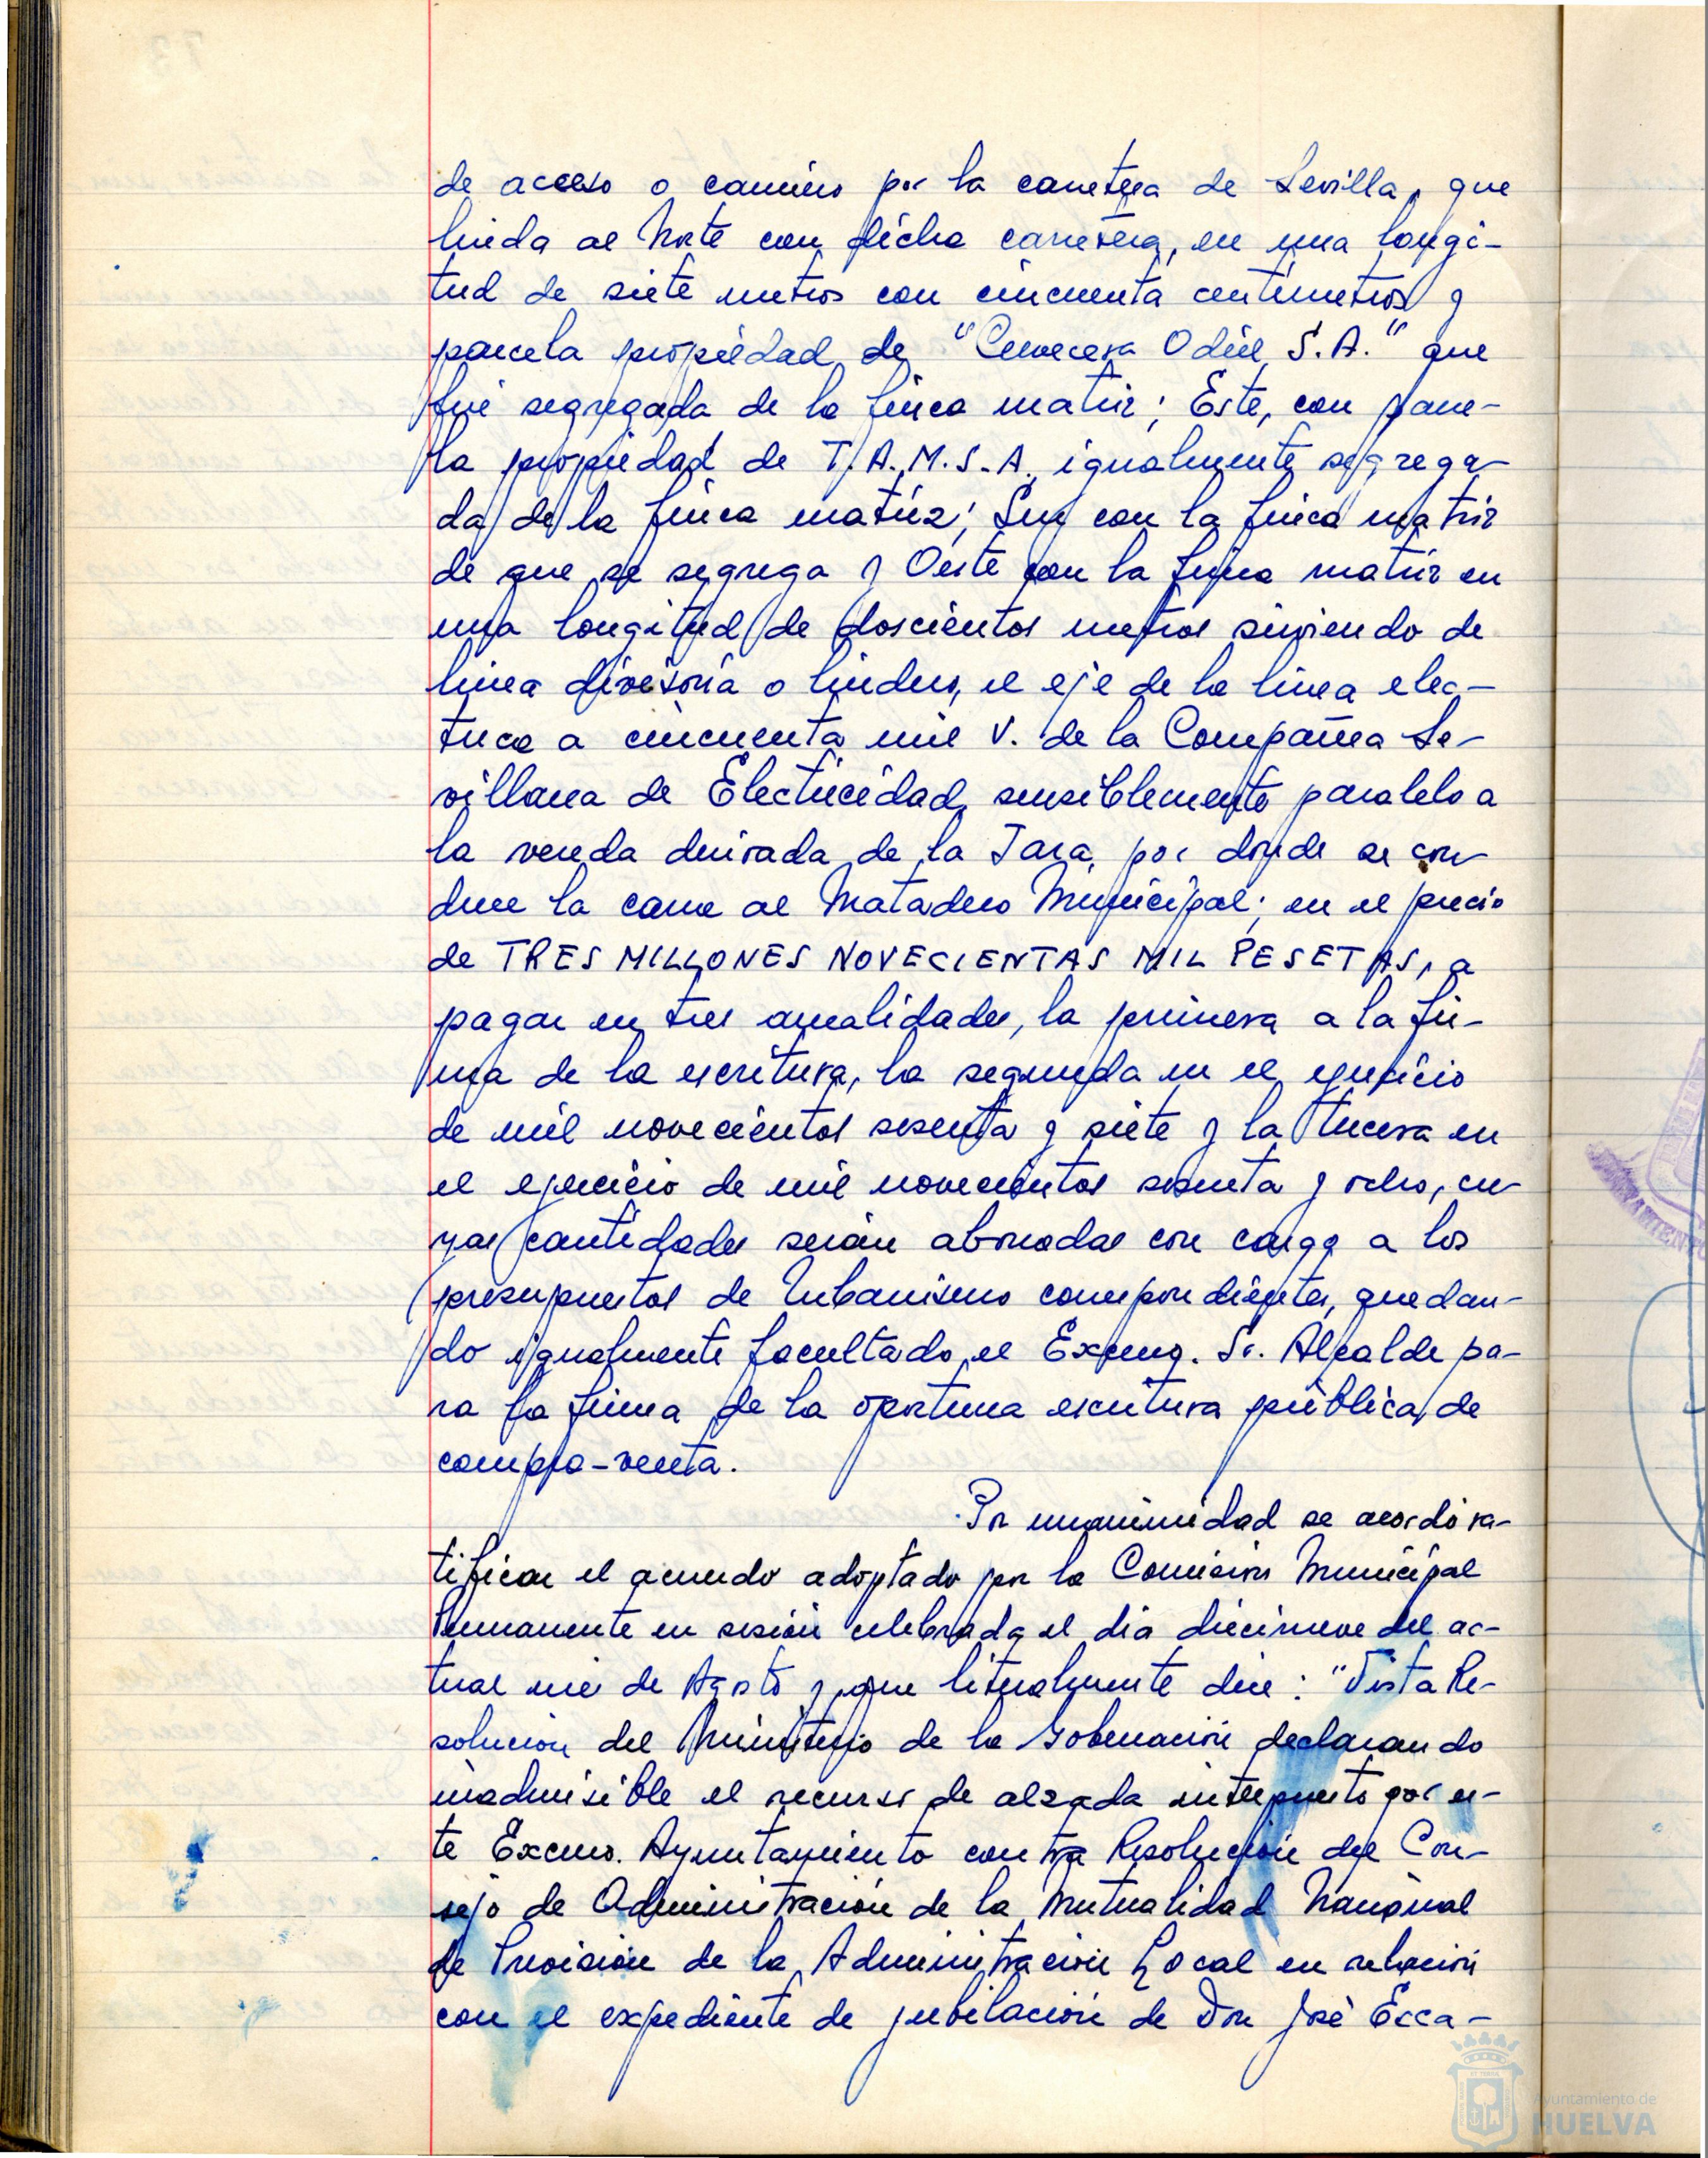 de acceso o camino por la carretera de Sevilla, que
linda al Norte con dicha carretera, en una longi-
tud de siete metros con cincuenta centímetros y
parcela propiedad de "Cervecera Odiel, S.A." que
fué segregada de la finca matriz; Este, con parce-
la propiedad de T.A.M.S.A. igualmente segrega-
da de la finca matriz; Sur con la finca matriz
de que se segrega y Oeste con la finca matriz en
una longitud de doscientos metros sirviendo de
línea divisoria o lindero, el eje de la línea elec-
trica a cincuenta mil V. de la Compañía Se-
villana de Electricidad, sensiblemente paralelo a
la vereda derivada de la Jara, por donde se con-
duce la carne al Matadero Municipal; en el precio
de TRES MILLONES NOVECIENTAS MIL PESETAS, a
pagar en tres anualidades, la primera a la fir-
ma de la escritura, la segunda en el ejercicio
de mil novecientos sesenta y siete y la tercera en
el ejercicio de mil novecientos sesenta y ocho, cu-
yas cantidades serán abonadas con cargo a los
presupuestos de Urbanismo correspondientes, quedan-
do igualmente facultado el Excmo. Sr. Alcalde pa-
ra la firma de la oportuna escritura pública de
compra-venta.
Por unanimidad se acordó ra-
tificar el acuerdo adoptado por la Comisión Municipal
Permanente en sesión celebrada el día diecinueve del ac-
tual mes de Agosto y que literalmente dice: "Vista Re-
solución del Ministerio de la Gobernación declarando
inadmisible el recurso de alzada interpuesto por es-
te Excmo. Ayuntamiento contra Resolución del Con-
sejo de Administración de la Mutualidad Nacional
de Previsión de la Administración Local en relación
con el expediente de jubilación de Don José Esca-
Ayuntamiento de
HUELVA